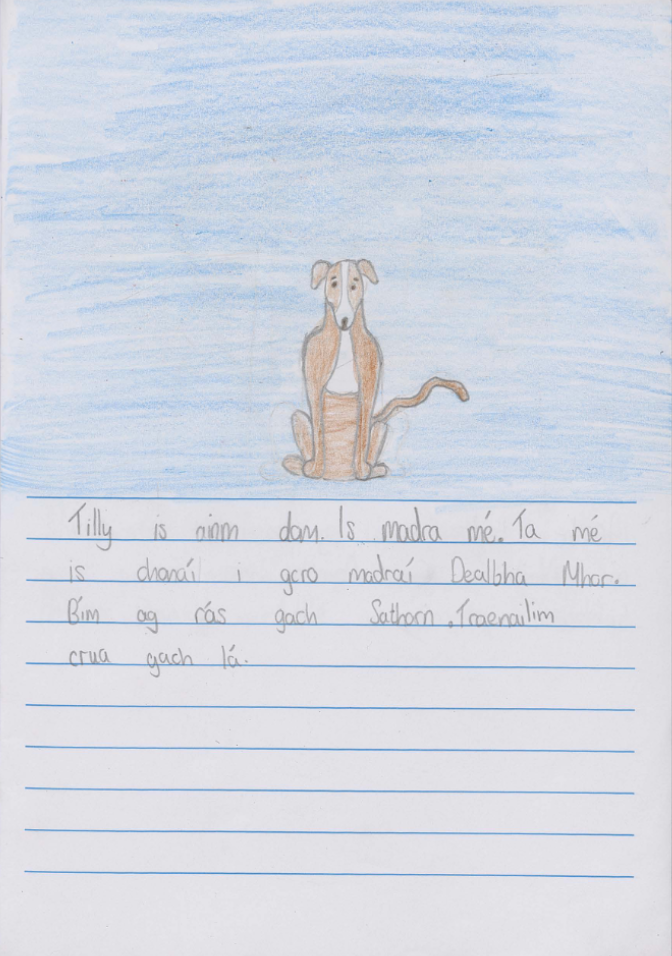 Tilly is ainm dom. Is madra mé. Ta mé
is chonáí i gcro madraí Dealbha Mhor.
Bím ag rás gach Sathorn. Traenailim
crua gach lá.